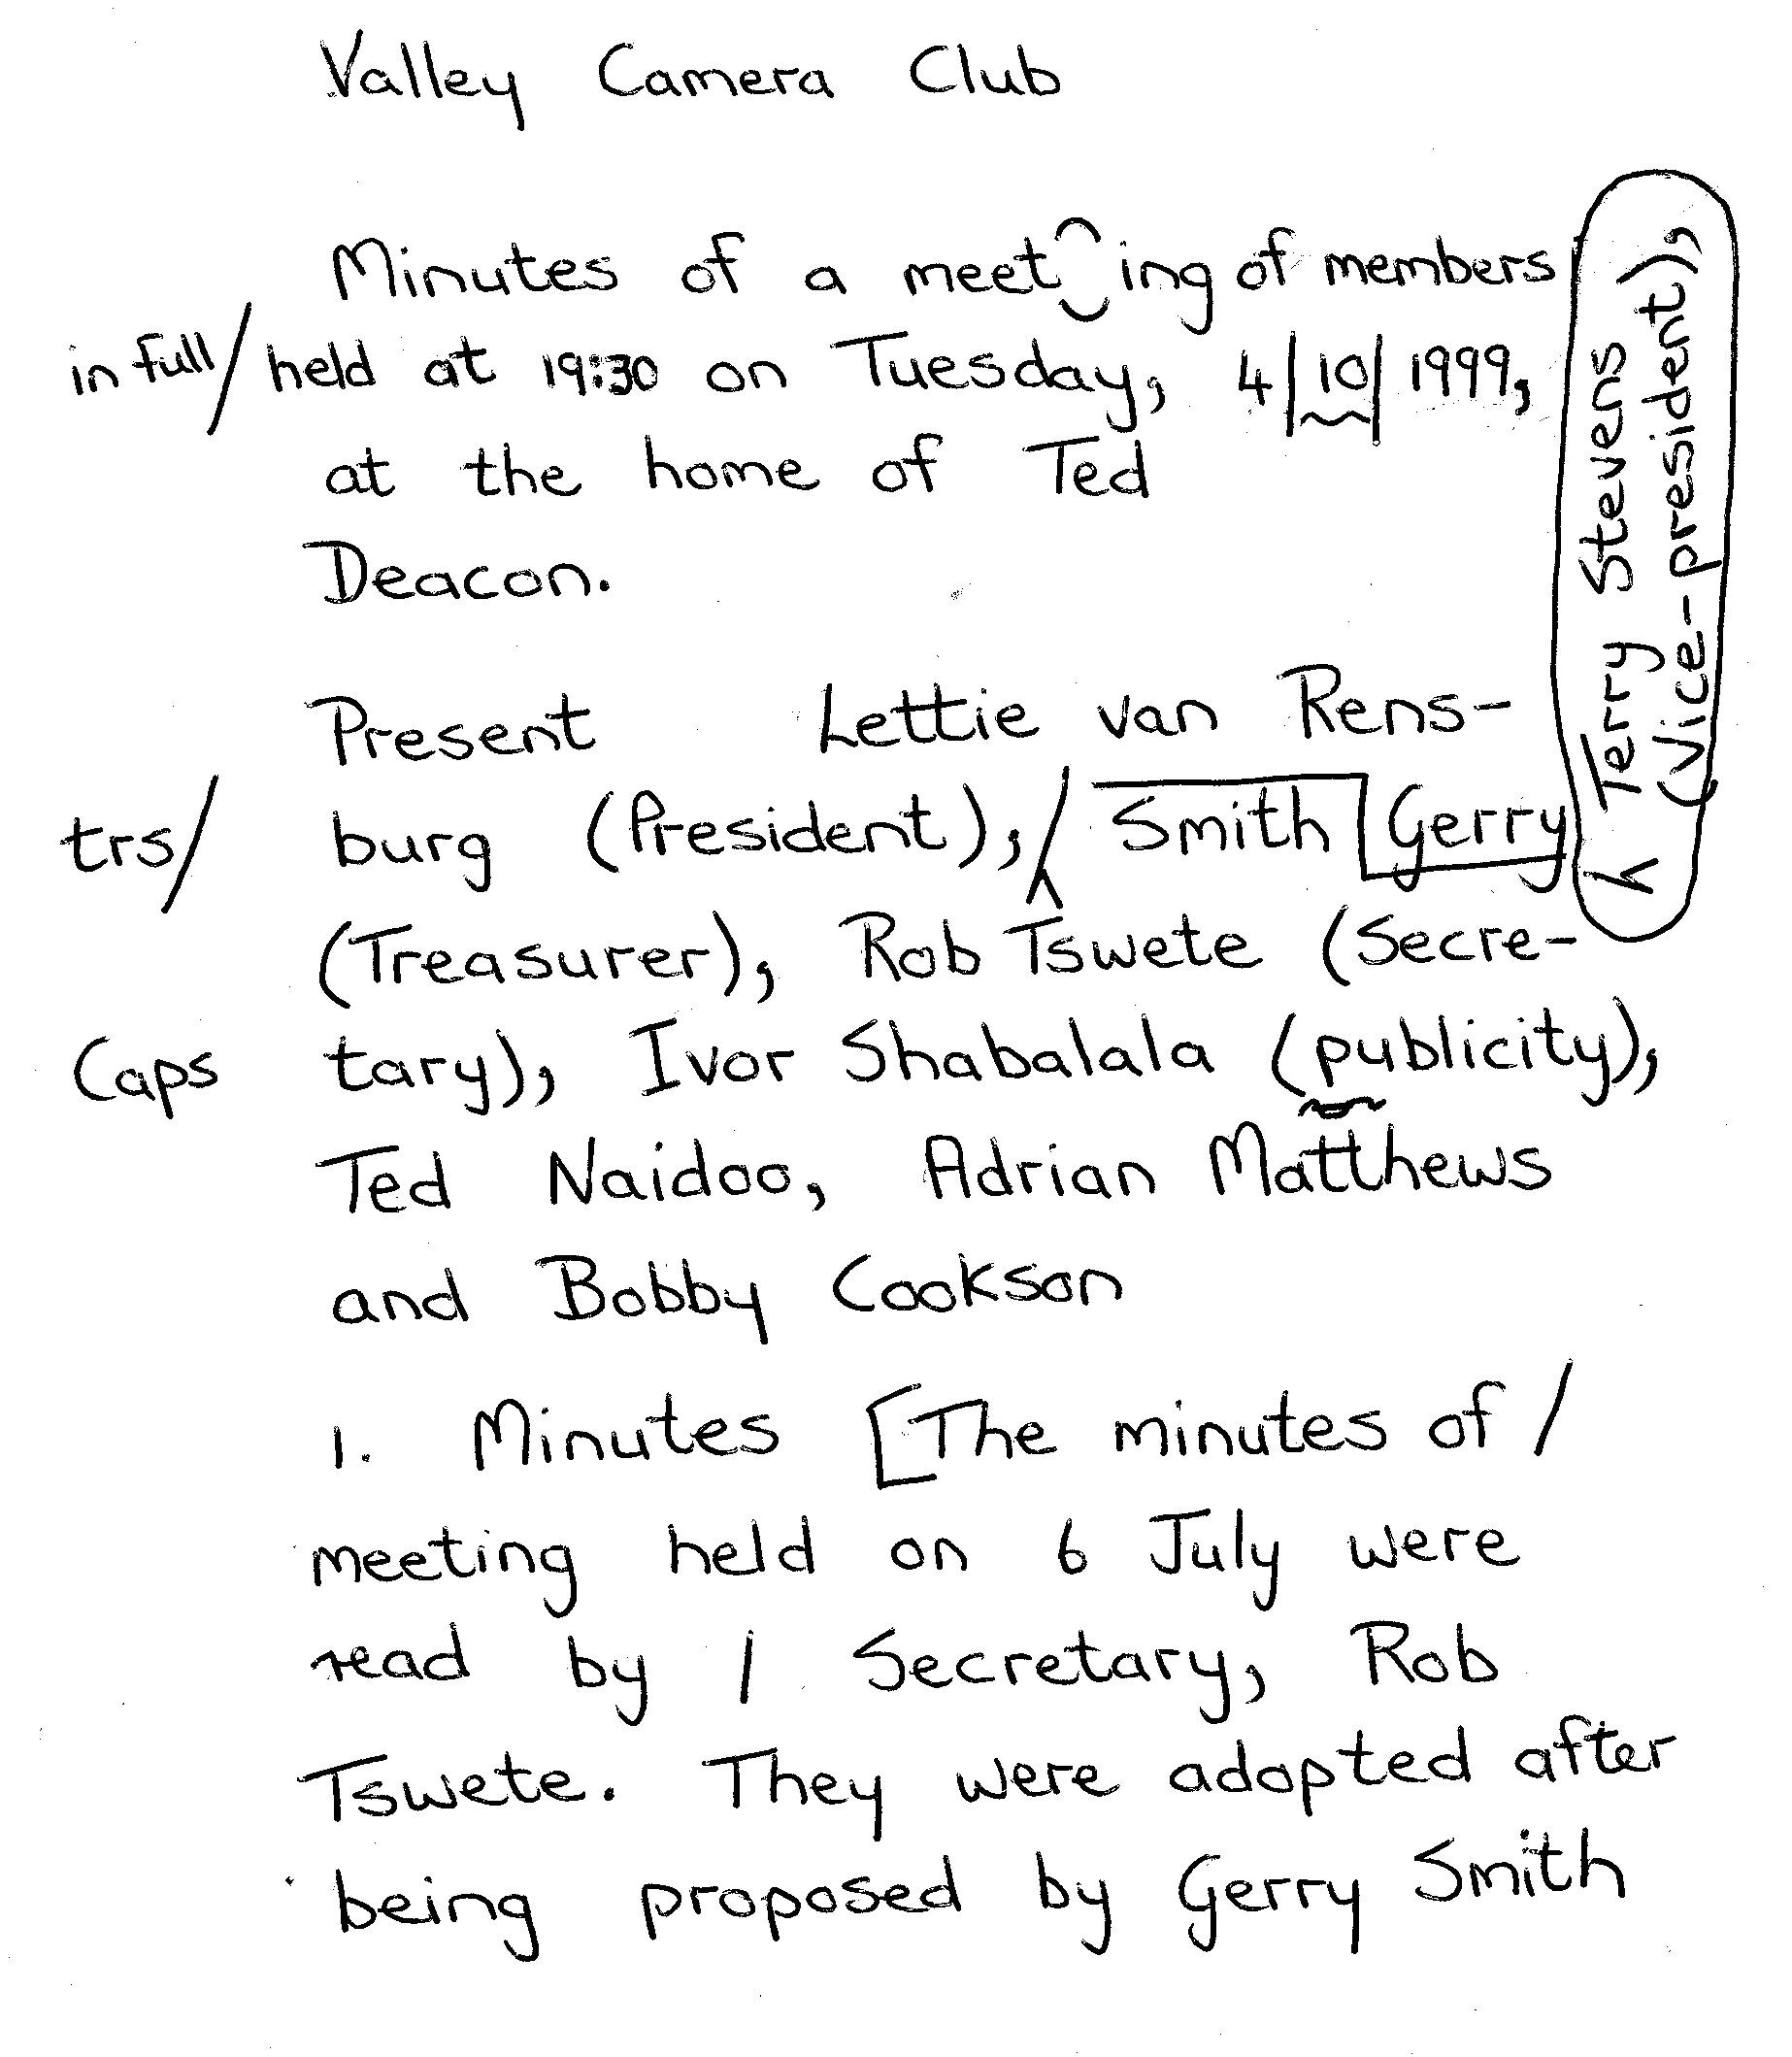 Valley Camera Club
Minutes of a meet ing of members
in full/ held at 19:30 on Tuesday, 4/10/1999,
at the home of Ted
Deacon.
Present Lettie van Rens-
trs/ burg (President), / Smith Gerry
(Treasurer), Rob Tswete (Secre-
Caps tary), Ivor Shabalala (publicity),
Ted Naidoo, Adrian Matthews
and Bobby Cookson
1. Minutes [The minutes of /
meeting held on 6 July were
read by / Secretary, Rob
Tswete. They were adopted after
being proposed by Gerry Smith
Terry Stevens
(Vice-president),